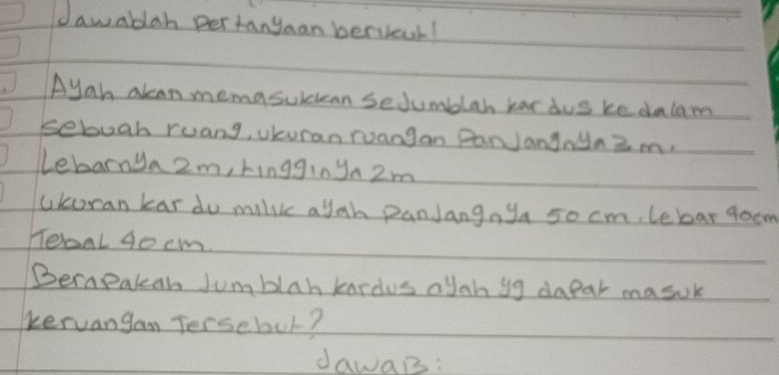 Jawablah pertanyaan berikut!
Ayah akan memasukkan sejumblah kardus ke dalam
sebuah ruang, ukuran ruangan Panjangnya 3 m,
Lebarnya 2m, tingginya 2m
Ukuran kardu milik ayah panjangnya 50 cm. lebar 40cm
Tebal 40 cm.
Berapakah Jumblah kardus ayah yg dapat masuk
keruangan Tersebut?
Jawab: